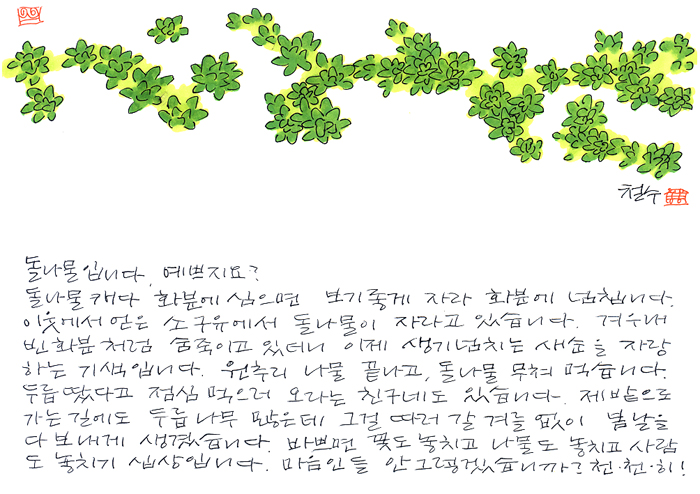 철수
돌나물입니다. 예쁘지요?
돌나물 캐다 화분에 심으면 보기좋게 자라 화분에 넘칩니다.
이웃에서 얻은 소구유에서 돌나물이 자라고 있습니다. 겨우내
빈화분처럼 숨죽이고 있더니 이제 생기넘치는 새순을 자랑
하는 기색입니다. 원추리 나물 끝나고, 돌나물 무쳐 먹습니다.
두릅 땄다고 점심 먹으러 오라는 친구네도 있습니다. 제 밭으로
가는 길에도 두릅나무 많은데 그걸 따러 갈 겨를 없이 봄날을
다 보내게 생겼습니다. 바쁘면 꽃도 놓치고 나물도 놓치고 사람
도 놓치기 십상입니다. 마음인들 안그렇겠습니까? 천·천·히!